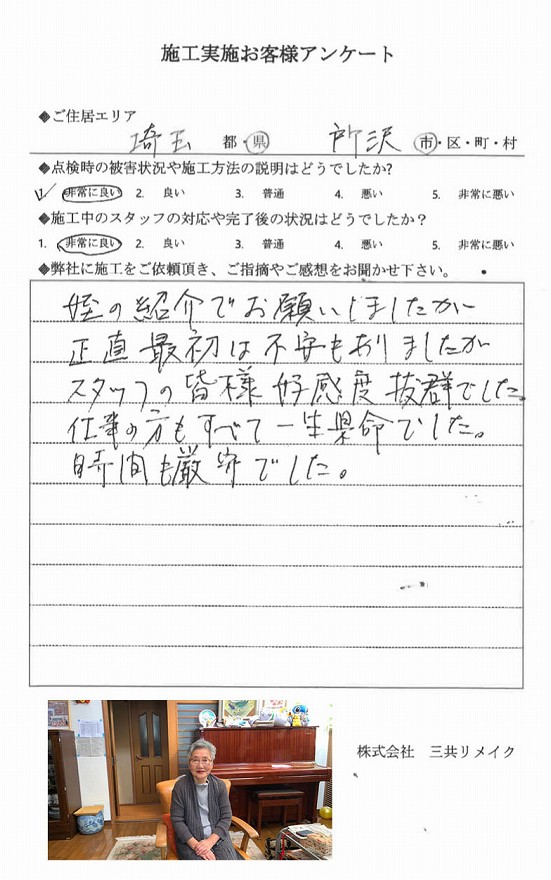 施工実施お客様アンケート
◆ご住居エリア
埼玉 都・県 所沢 市・区・町・村
◆点検時の被害状況や施工方法の説明はどうでしたか?
1. 非常に良い 2. 良い 3. 普通 4. 悪い 5. 非常に悪い
◆施工中のスタッフの対応や完了後の状況はどうでしたか?
1. 非常に良い 2. 良い 3. 普通 4. 悪い 5. 非常に悪い
◆弊社に施工をご依頼頂き、ご指摘やご感想をお聞かせ下さい。
姪の紹介でお願いしましたが
正直最初は不安もありましたが
スタッフの皆様好感度抜群でした。
仕事の方もすべて一生県命でした。
時間も厳守でした。
株式会社 三共リメイク